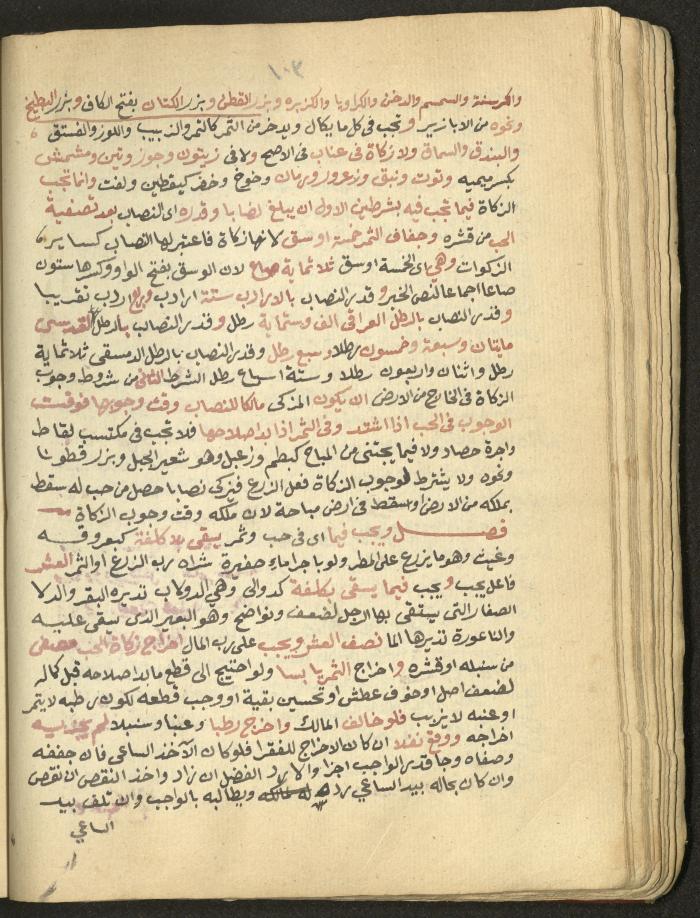 ١٠٣
والكرسنة والسمسم والدخن والكراويا والكزبره وبزر القطن وبزر الكتان بفتح الكاف وبزر البطيخ
ونحوه من الابازير وتجب فى كل ما يكال ويدخر من الثمر كالتمر والزبيب واللوز والفستق
والبندق والسماق ولا زكاة فى عناب فى الاصح ولا فى زيتون وجوز وتين ومشمش
بكسر ميميه وتوت ونبق وزعرور ورمان وخوخ وخضر كيقطين ولفت وانما تجب
الزكاة فيما تجب فيه بشرطين الاول ان يبلغ نصابا وقدره اى النصاب بعد تصفية
الحب من قشره وجفاف الثمر خمسة اوسق لانها زكاة فاعتبر لها النصاب كساير
الزكوات وهى اى الخمسة اوسق ثلاثماية صاع لان الوسق بفتح الواو وكسرها ستون
صاعا اجماعا لنص الخبر وقدر النصاب بالارادب ستة ارادب وربع اردب تقريبا
وقدر النصاب بالرطل العراقى الف وستماية رطل وقدر النصاب بالرطل القدسى
مايتان وسبعة وخمسون رطلا وسبع رطل وقدر النصاب بالرطل الدمشقى ثلاثماية
رطل واثنان واربعون رطلا وستة اسباع رطل الشرط الثانى من شروط وجوب
الزكاة فى الخارج من الارض ان يكون المزكى مالكا للنصاب وقت وجوبها فوقت
الوجوب فى الحب اذا اشتد وفى الثمر اذا بدا صلاحها فلا تجب فى مكتسب لقاط
واجرة حصاد ولا فيما يجتنى من المباح كبطم وزعبل وهو شعير الجبل وبزر قطونا
ونحوه ولا يشترط لوجوب الزكاة فعل الزرع فيزكى نصابا حصل من حب له سقط
بملكه من الارض او سقط فى ارض مباحة لانه ملكه وقت وجوب الزكاة
فصل ويجب فيما اى فى حب وثمر يسقى بلا كلفة كبعروقه
وغيث وهو ما يزرع على المطر ولو باجرا ماء حفيرة شراه رب الزرع او الثمر العشر
فاعل يجب ويجب فيما يسقى بكلفة كدوالى وهي الدولاب تديره البقر والدلا
الصغار التى يستقى بها الرجل لضعف ونواضح وهو البعير الذى يسقى عليه
والناعورة تديرها الما نصف العشر ويجب على رب المال اخراج زكاة الحب مصفى
من سنبله او قشره واخراج الثمر يابسا ولو احتيج الى قطع ما بدا صلاحه قبل كماله
لضعف اصل او خوف عطش او تحسين بقية او وجب قطعه لكون رطبه لا يتمر
او عنبه لا يزبب فلو خالف المالك واخرج رطبا وعنبا وسنبلا لم يجزيه
اخراجه ووقع نفلا ان كان الاخراج للفقرا فلو كان الآخذ الساعى فان جففه
وصفاه وجا قدر الواجب اجزا والا رد الفضل ان زاد واخذ النقص ان نقص
وان كان بحاله بيد الساعي رده له لمالكه ويطالبه بالواجب وان تلف بيد
الساعي